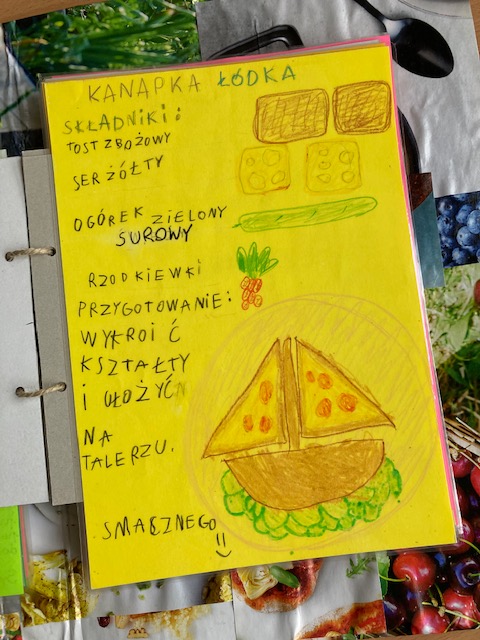 KANAPKA ŁÓDKA
SKŁADNIKI:
TOST ZBOŻOWY
SER ŻÓŁTY
OGÓREK ZIELONY
SUROWY
RZODKIEWKI
PRZYGOTOWANIE:
WYKROIĆ
KSZTAŁTY
I UŁOŻYĆ
NA
TALERZU.
SMACZNEGO